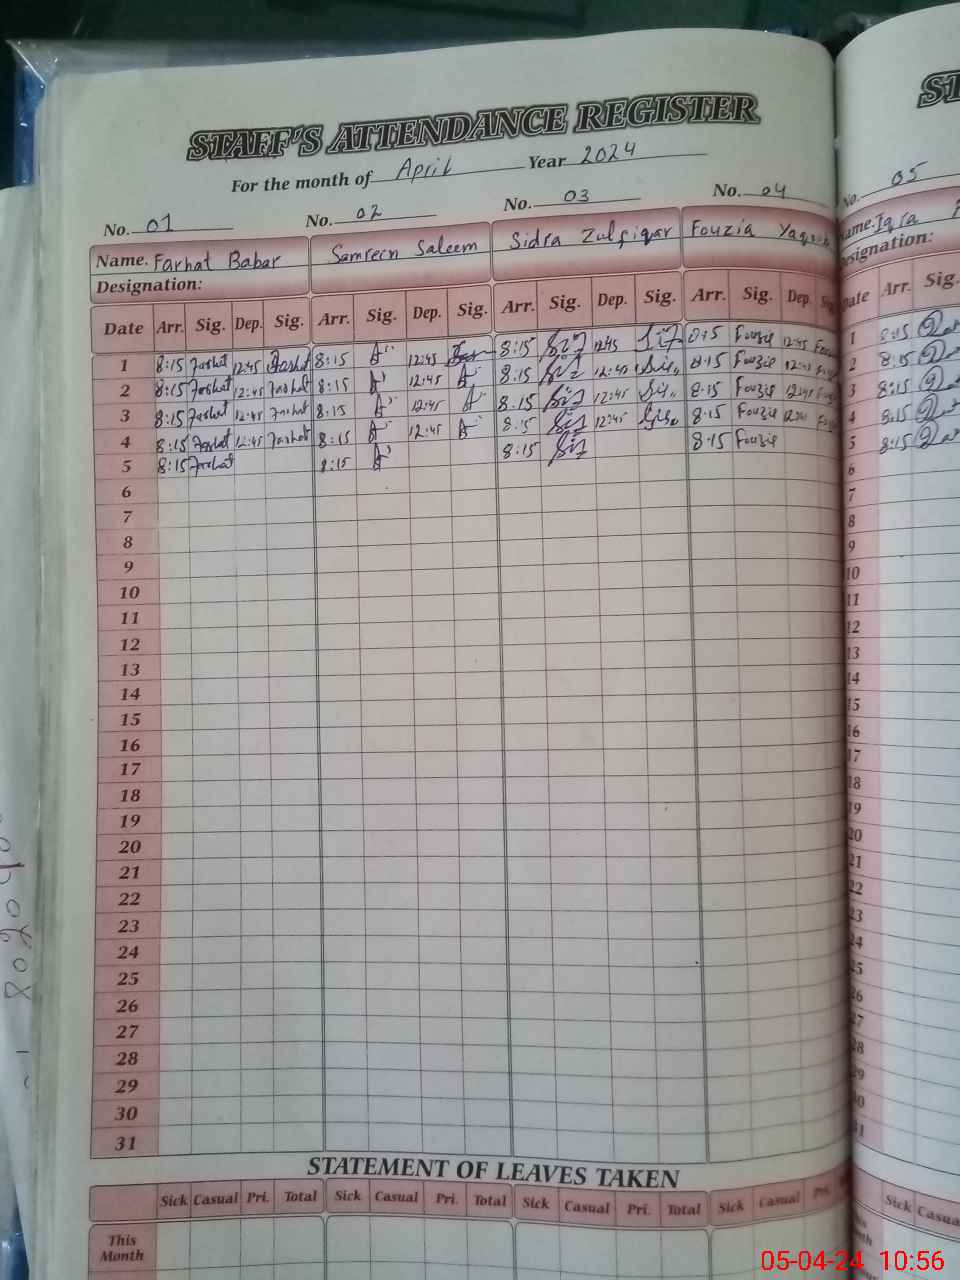 STAFF'S ATTENDANCE REGISTER
For the month of April Year 2024
No. 01 No. 02 No. 03 No. 04
Name. Farhat Babar Samreen Saleem Sidra Zulfiqar Fouzia
Designation:
Date Arr. Sig. Dep. Sig. Arr. Sig. Dep. Sig. Arr. Sig. Dep. Sig. Arr. Sig. Dep.
1 8:15 Farhat 12:45 Farhat 8:15 12:45 8:15 12:45 8:15 Fouzia 12:45
2 8:15 Farhat 12:45 Farhat 8:15 12:45 8:15 12:45 8:15 Fouzia
3 8:15 Farhat 12:45 Farhat 8:15 12:45 8:15 12:45 8:15 Fouzia 12:45
4 8:15 Farhat 12:45 Farhat 8:15 12:45 8:15 12:45 8:15 Fouzia
5 8:15 Farhat 8:15 8:15 8:15 Fouzia
6
7
8
9
10
11
12
13
14
15
16
17
18
19
20
21
22
23
24
25
26
27
28
29
30
31
STATEMENT OF LEAVES TAKEN
Sick Casual Pri. Total Sick Casual Pri. Total Sick Casual Pri. Total Sick Casual Pri.
This
Month
ST
No. 05
Iqra
Date Arr. Sig.
1 8:15
2 8:15
3 8:15
4 8:15
5 8:15
6
7
8
9
10
11
12
13
14
15
16
17
18
19
20
21
22
23
24
25
26
27
28
29
30
31
Sick Casua
05-04-24 10:56